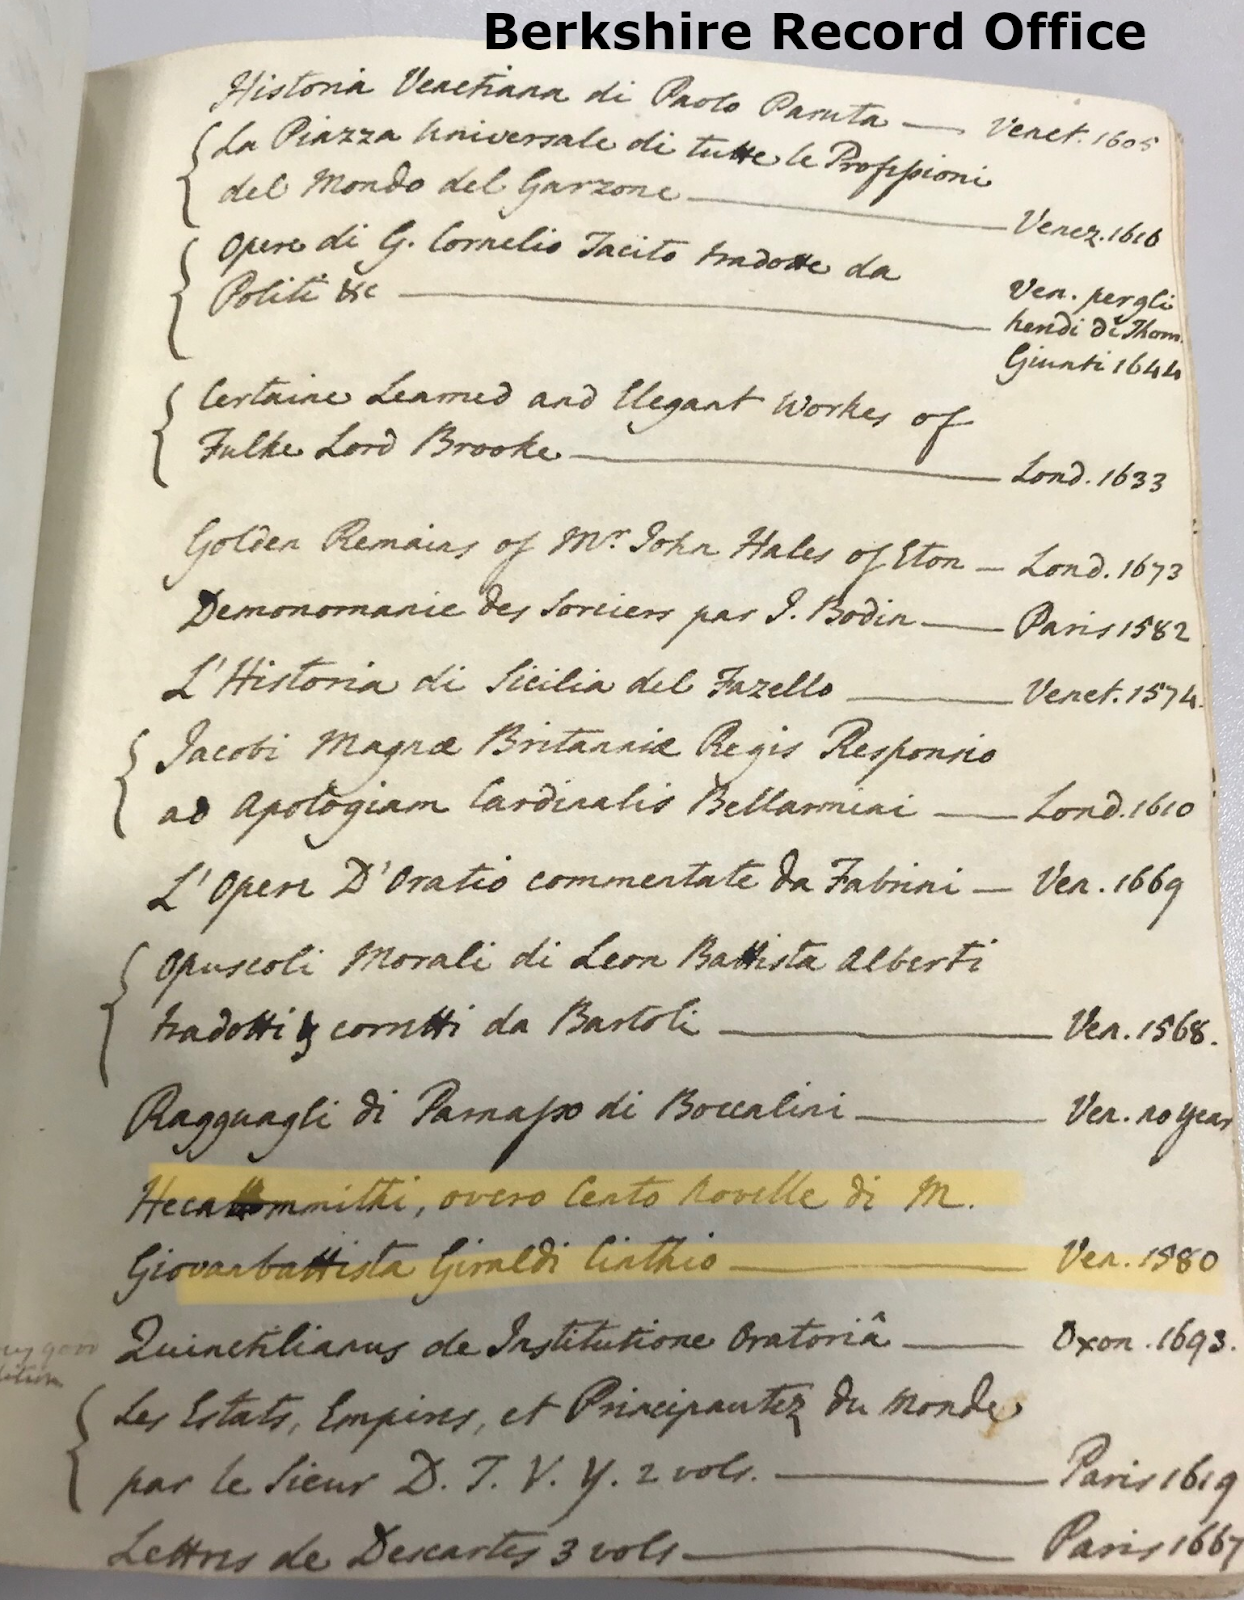 Berkshire Record Office
Historia Venetiana di Paolo Paruta — Venet. 1605
La Piazza Universale di tutte le Professioni
del Mondo del Garzone — Venez. 1616
Opere di G. Cornelio Tacito tradotte da
Politi &c — Ven. per gli
heredi di Thom.
Giunti 1644
Certaine Learned and Elegant Workes of
Fulke Lord Brooke — Lond. 1633
Golden Remains of Mr. John Hales of Eton — Lond. 1673
Demonomanie des Sorciers par J. Bodin — Paris 1582
L'Historia di Sicilia del Fazello — Venet. 1574.
Jacobi Magnæ Britanniæ Regis Responsio
ad Apologiam Cardinalis Bellarmini — Lond. 1610
L'Opere D'Oratio commentate da Fabrini — Ven. 1669
Opuscoli Morali di Leon Battista Alberti
tradotti & corretti da Bartoli — Ven. 1568.
Ragguagli di Parnasso di Boccalini — Ven. no year
Hecatommithi, overo Cento Novelle di M.
Giovanbattista Giraldi Cinthio — Ven. 1580
Quinctilianus de Institutione Oratoriâ — Oxon. 1693.
good
Les Estats, Empires, et Principautez du Monde
par le Sieur D. T. V. Y. 2 vols. — Paris 1619
Lettres de Descartes 3 vols — Paris 1667